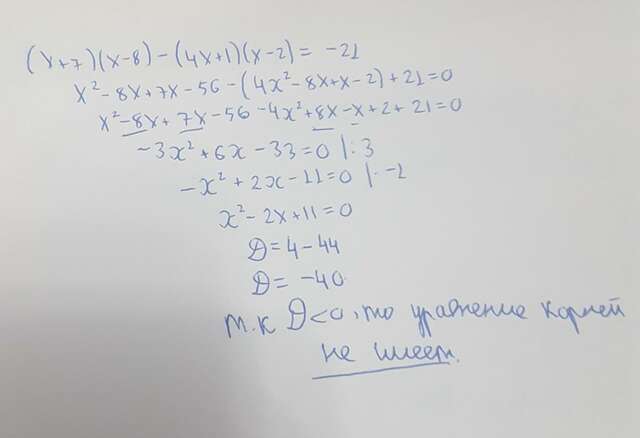 (x+7)(x-8)-(4x+1)(x-2)= -21
x²-8x+7x-56-(4x²-8x+x-2)+21=0
x²-8x+7x-56-4x²+8x-x+2+21=0
-3x²+6x-33=0 |:3
-x²+2x-11=0 |·-1
x²-2x+11=0
D=4-44
D= -40
т.к D<0, то уравнение корней
не имеет.